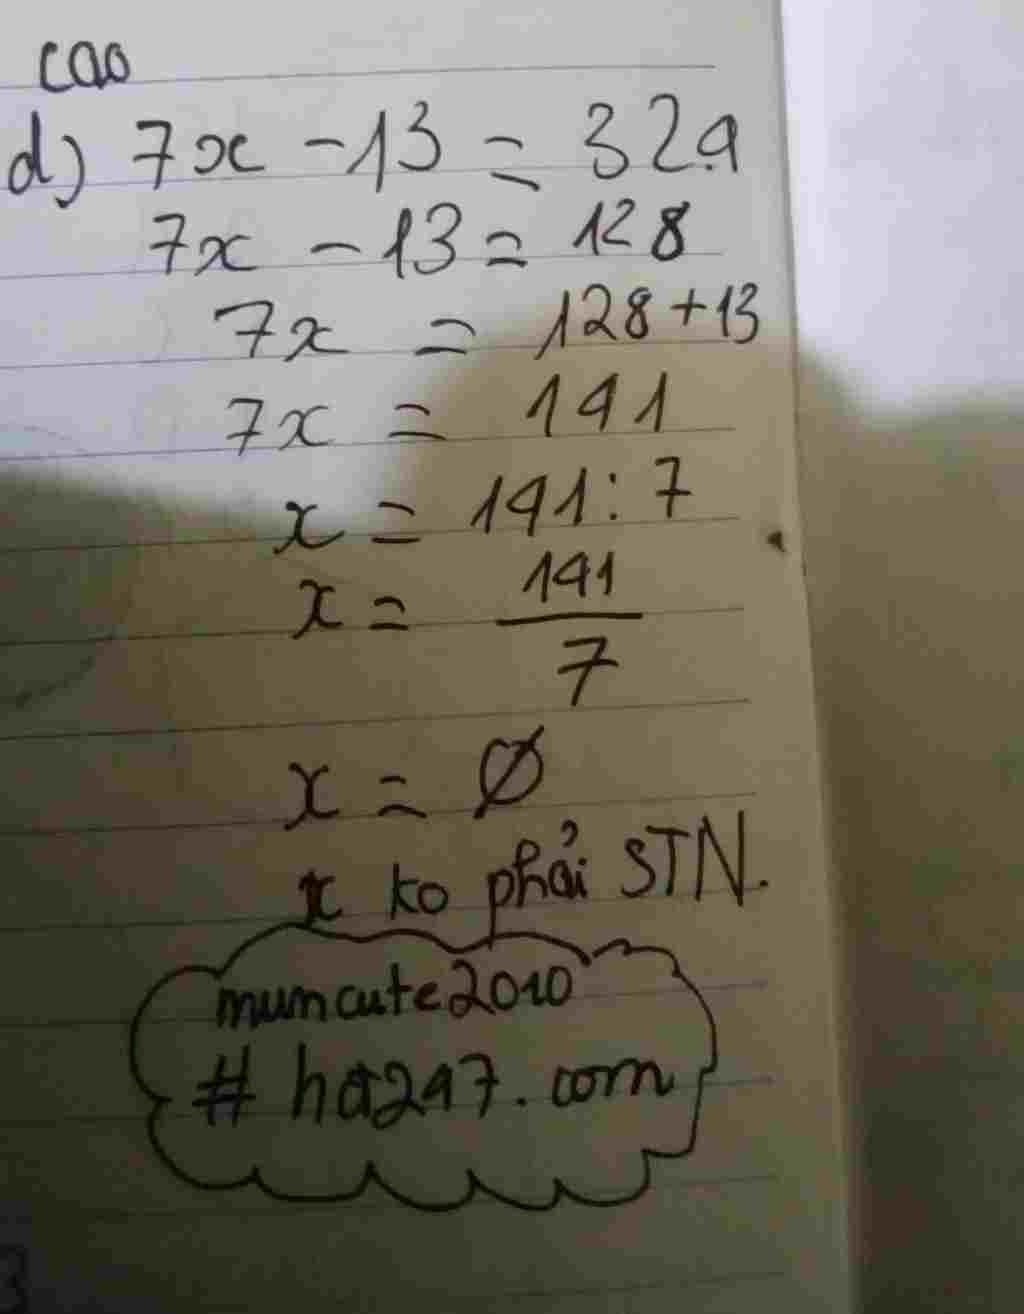 cao
d) 7x - 13 = 32.4
7x - 13 = 128
7x = 128 + 13
7x = 141
x = 141 : 7
x = 141/7
x = Ø
x ko phải STN.
mumcute2010
# hđ247.com
3